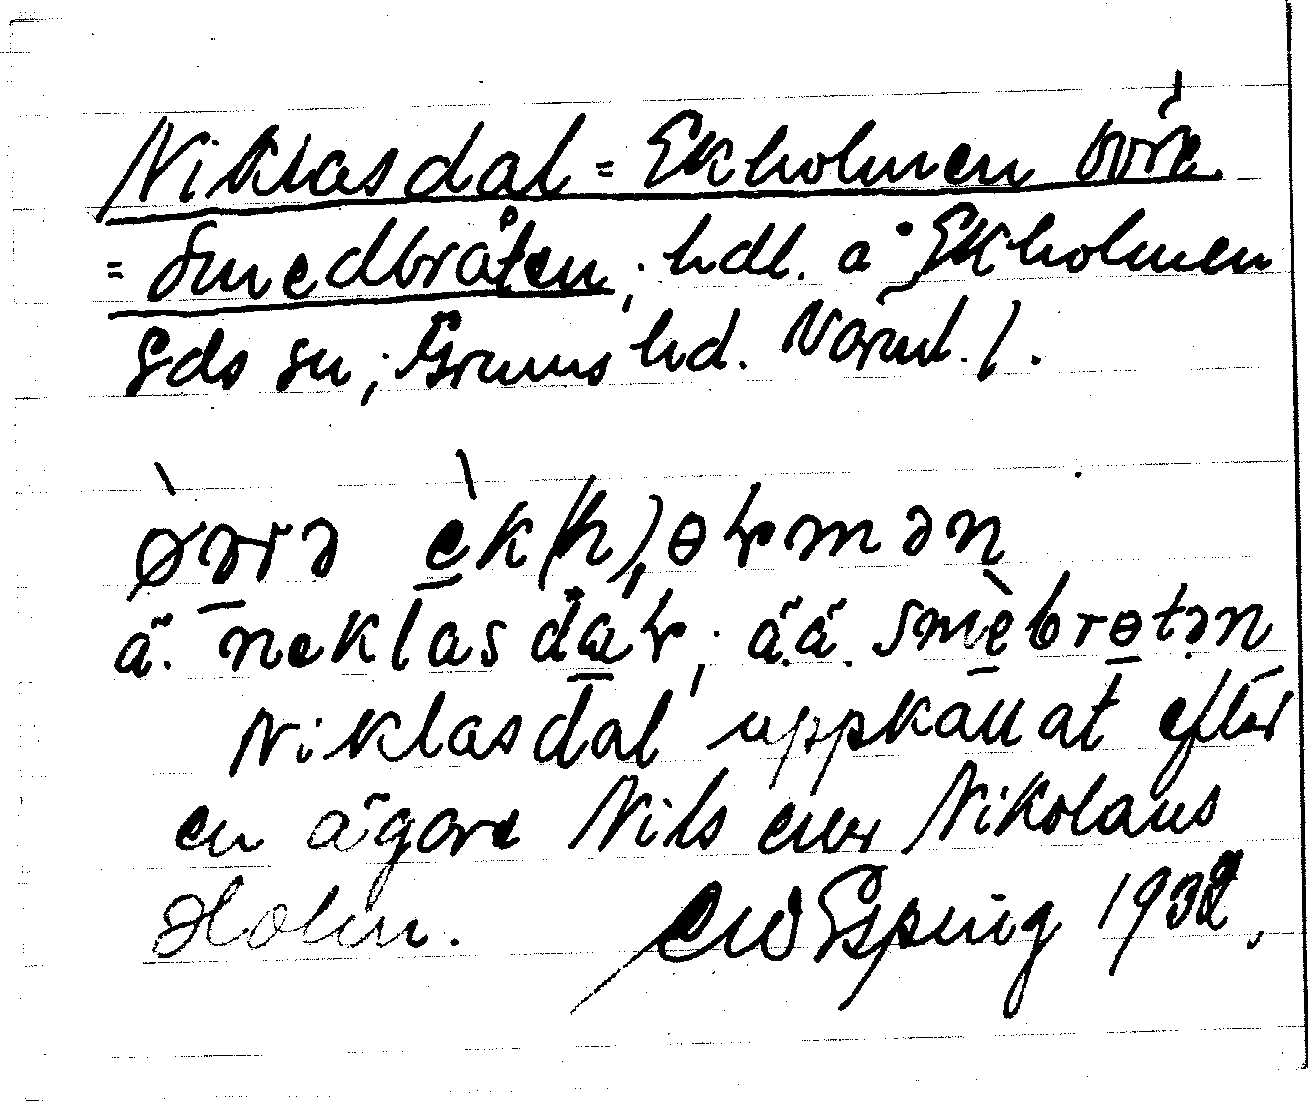 Niklasdal = Ekholmen övre
= Smedbråten; hdl. å Ekholmen
Eds sn; Grums hd. Värml. l.
øvrə èk(h)ɵɽmən
ä. neklasdaɽ; ä.ä. smèbrɵtən
Niklasdal uppkallat efter
en ägare Nils eller Nikolaus
Holm. Esping 1932.